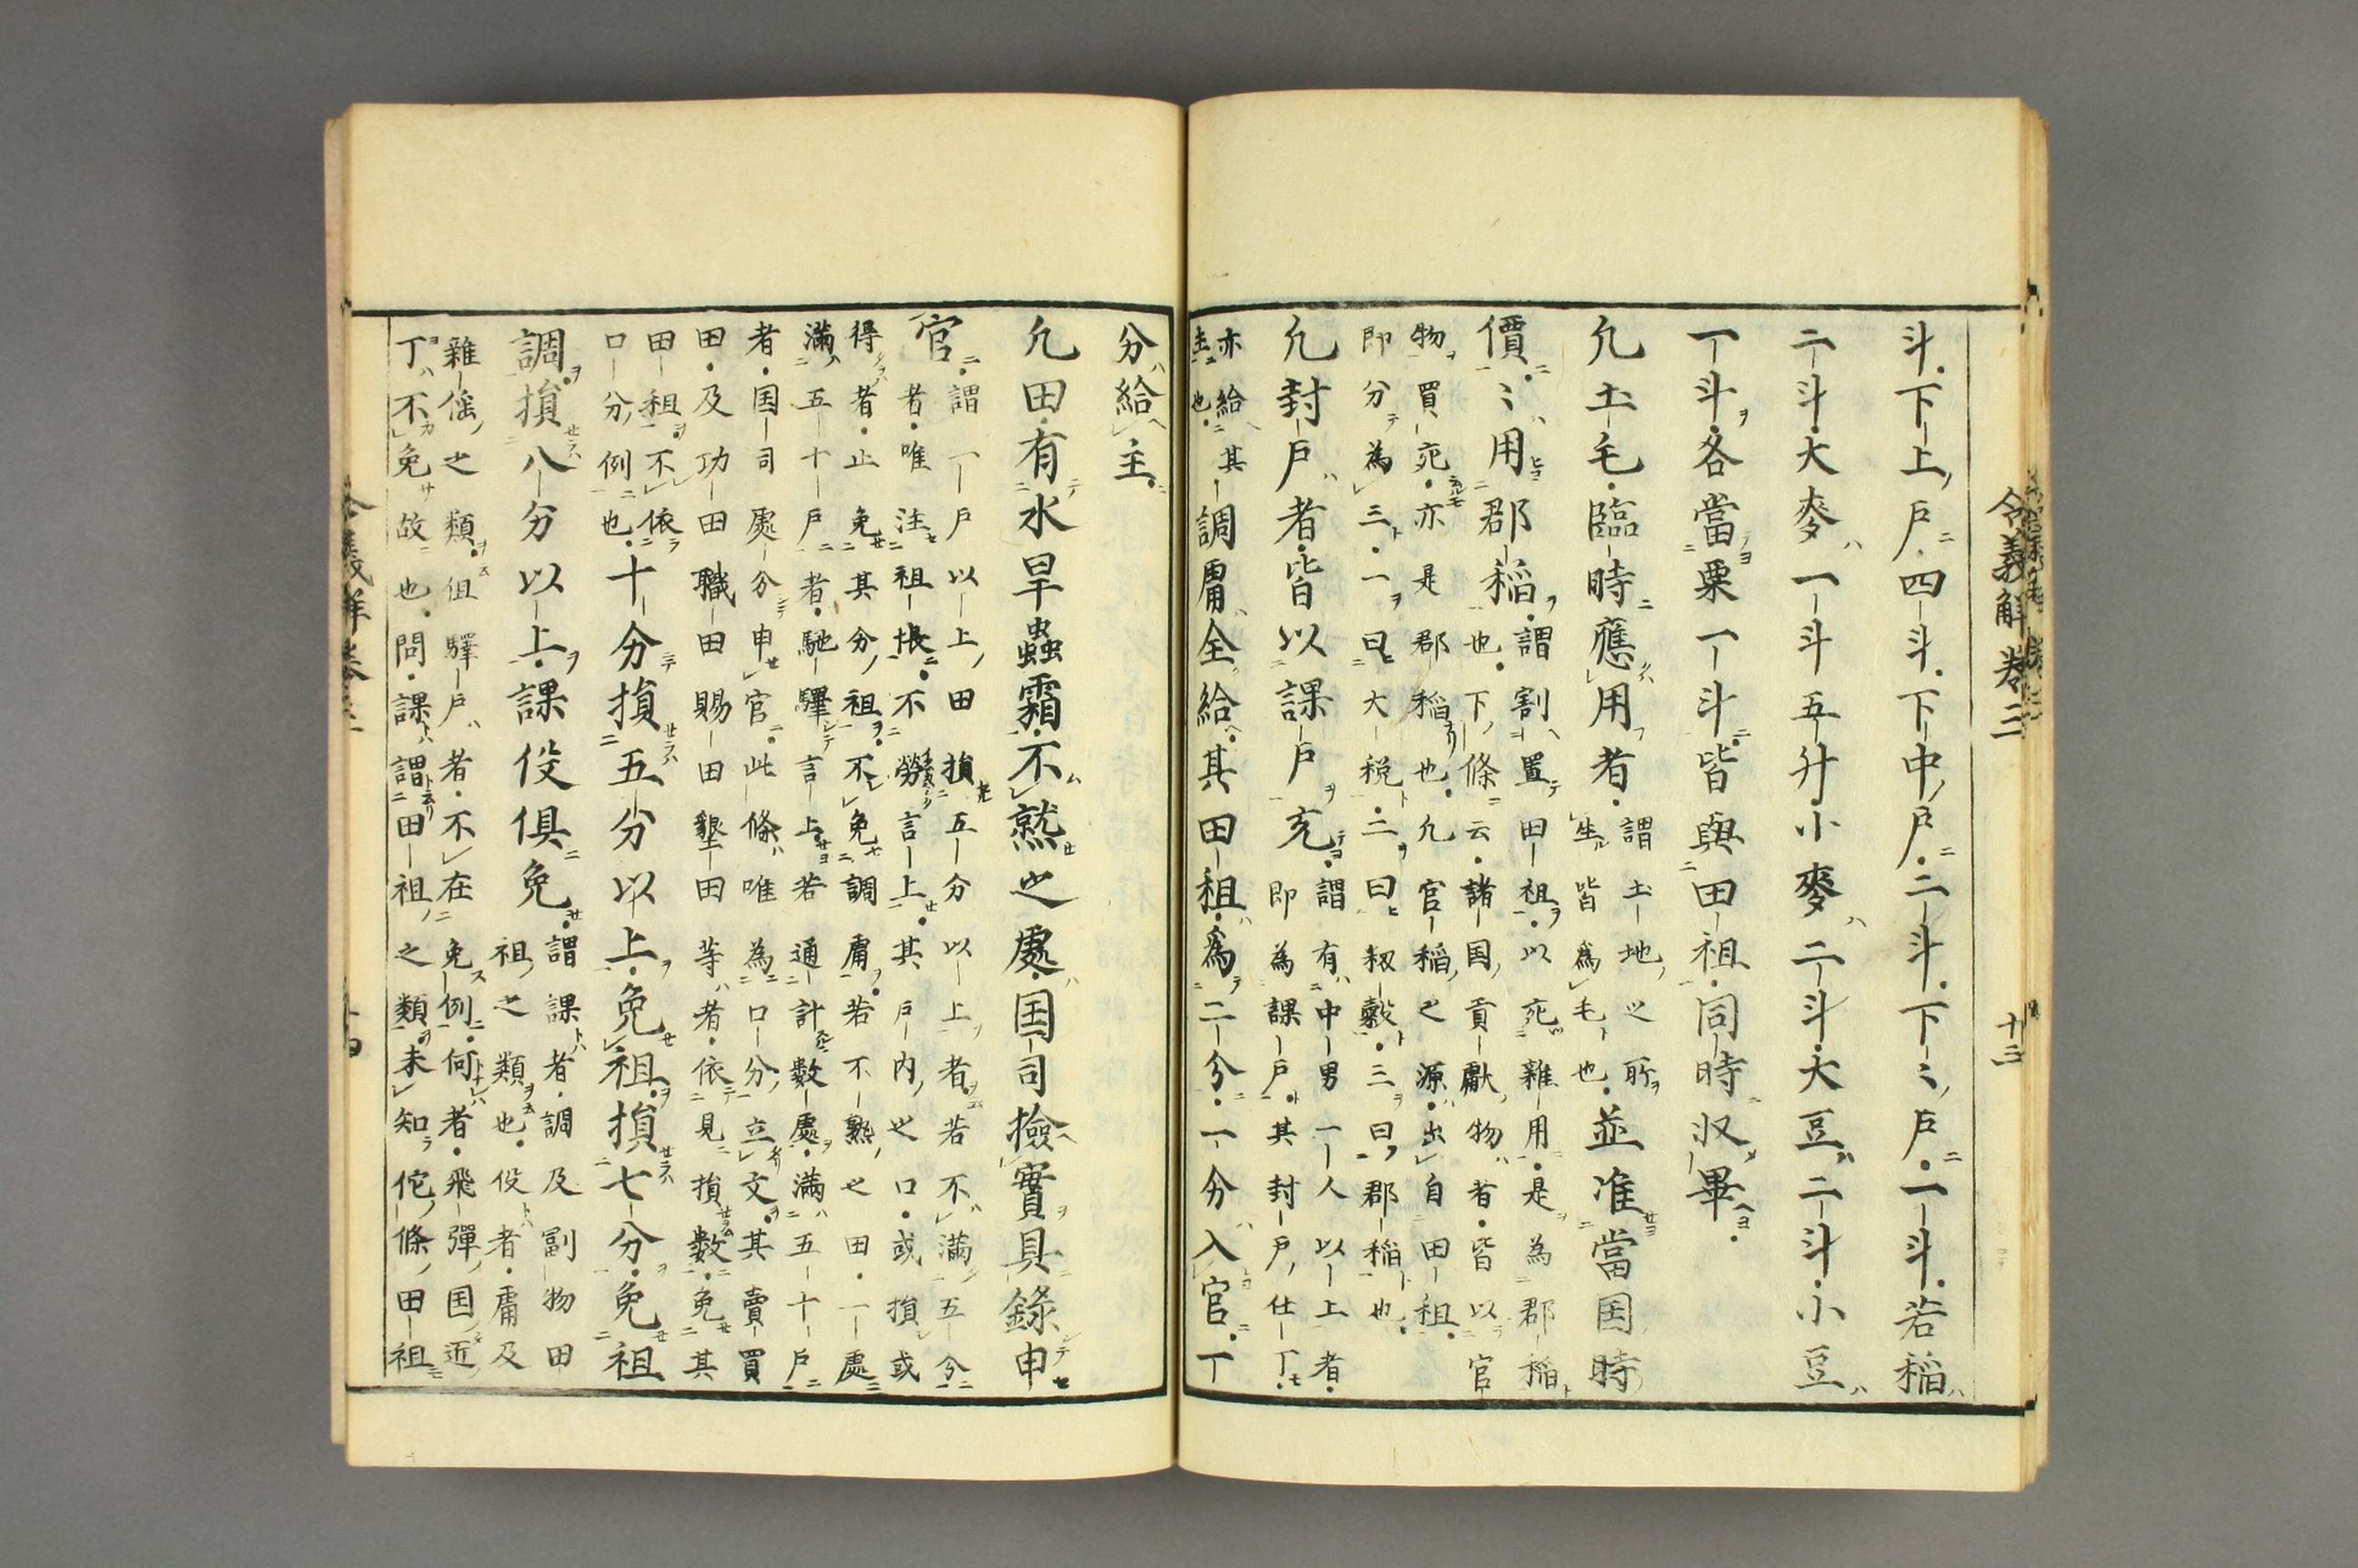 令義解卷三　十三
斗下上戸四斗下中戸二斗下〻戸一斗若稲
二斗大麥一斗五升小麥二斗大豆二斗小豆
一斗各當粟一斗皆與田租同時収畢
凢土毛臨時應用者
謂土地之所
生皆為毛也
並准當国時
價〻用郡稲
謂割置田租以宛雜用是為郡稲
也下條云諸国貢獻物者皆以官
物買宛亦是郡稲也凢官稲之源出自田租
即分為三一曰大税二曰籾穀三曰郡稲也
凢封戸者皆以課戸充
謂有中男一人以上者
即為課戸其封戸仕丁
亦給其
主也
調庸全給其田租為二分一分入官一
分給主
凢田有水旱蟲霜不熟之處国司撿實具錄申
官
謂一戸以上田損五分以上者若不滿五分
者唯注租帳不勞言上其戸内之口或損或
得者止免其分租不免調庸若不熟之田一處
滿五十戸者馳驛言上若通計數處滿五十戸
者国司處分申官此條唯為口分立文其賣買
田及功田職田賜田墾田等者依見損數免其
田租不依
口分例也
十分損五分以上免租損七分免租
調損八分以上課役俱免
謂課者調及副物田
租之類也役者庸及
雜徭之類但驛戸者不在免例何者飛彈国近
丁不免故也問課謂田租之類未知佗條田租